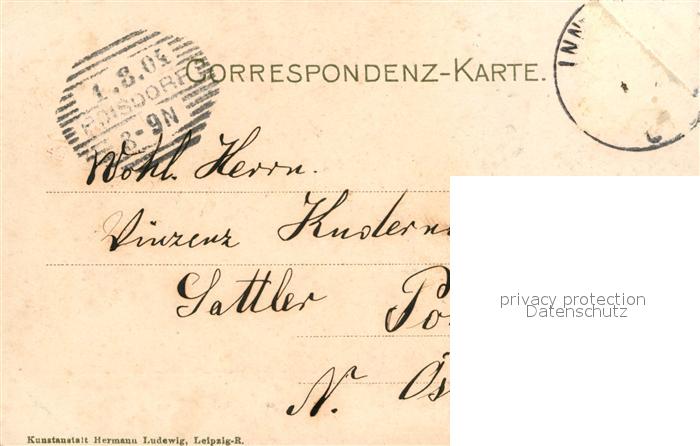 1.8.04
POISDORF
8-9N
CORRESPONDENZ-KARTE.
INN
Wohl. Herrn.
Vinzenz Kudern
Sattler Po
N. Ös
privacy protection
Datenschutz
Kunstanstalt Hermann Ludewig, Leipzig-R.